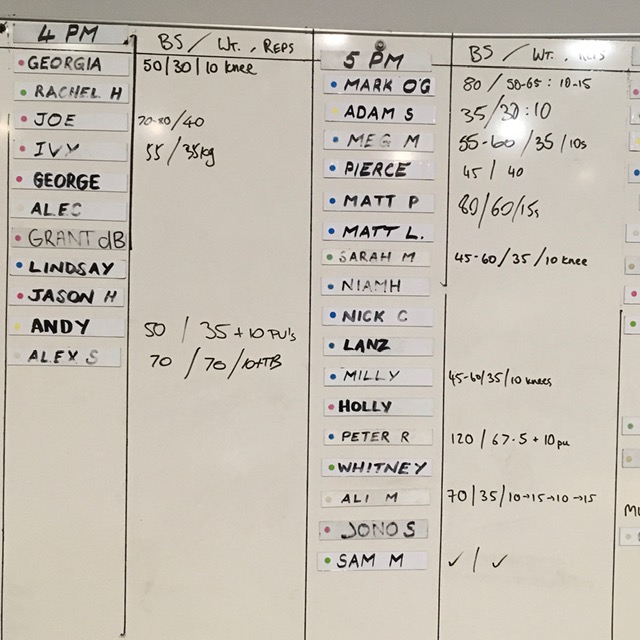 4 PM BS / WT. , REPS
GEORGIA 50/30/10 knee
RACHEL H
JOE 70-80/40
IVY 55/35kg
GEORGE
ALEC
GRANT dB
LINDSAY
JASON H
ANDY 50 / 35 + 10 PU's
ALEX S 70 / 70 / 10 TTB
5 PM BS / WT. , REPS
MARK O'G 80 / 50-65 : 10-15
ADAM S 35/30:10
MEG M 55-60 / 35 / 10s
PIERCE 45 / 40
MATT P 80/60/15s
MATT L.
SARAH M 45-60/35/10 knee
NIAMH
NICK C
LANZ
MILLY 45-60/35/10 knees
HOLLY
PETER R 120 / 67.5 + 10 pu
WHITNEY
ALI M 70/35/10→15→10→15
JONO S
SAM M ✓ / ✓